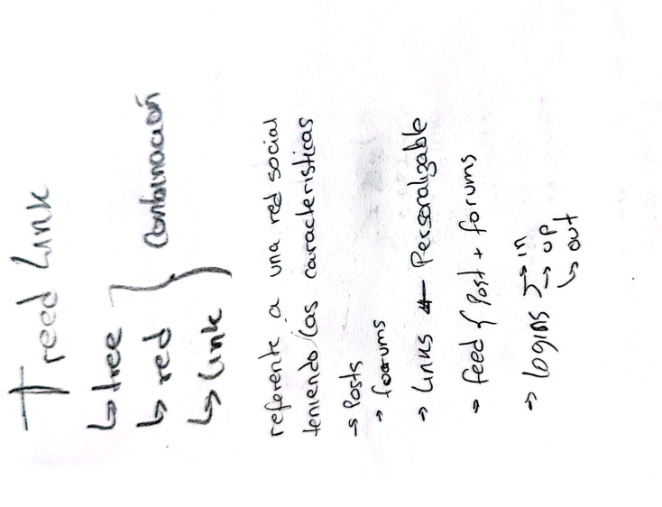 Treed Link
↳ tree
↳ red } Combinación
↳ Link
referente a una red social
teniendo las caracteristicas
→ Posts
→ forums
→ Links ← Personalizable
→ feed { Post + forums
→ logins → in
→ up
↳ out